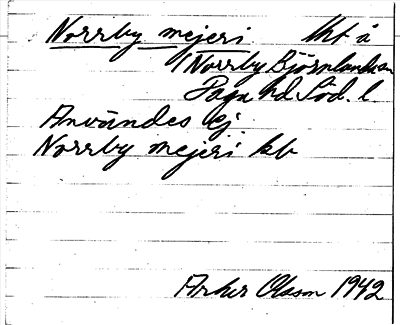 Norrby mejeri. Uht å
1 Norrby Björnlunda sn
Daga hd Söd. l
Användes ej.
Norrby mejeri kb
Olsson 1942